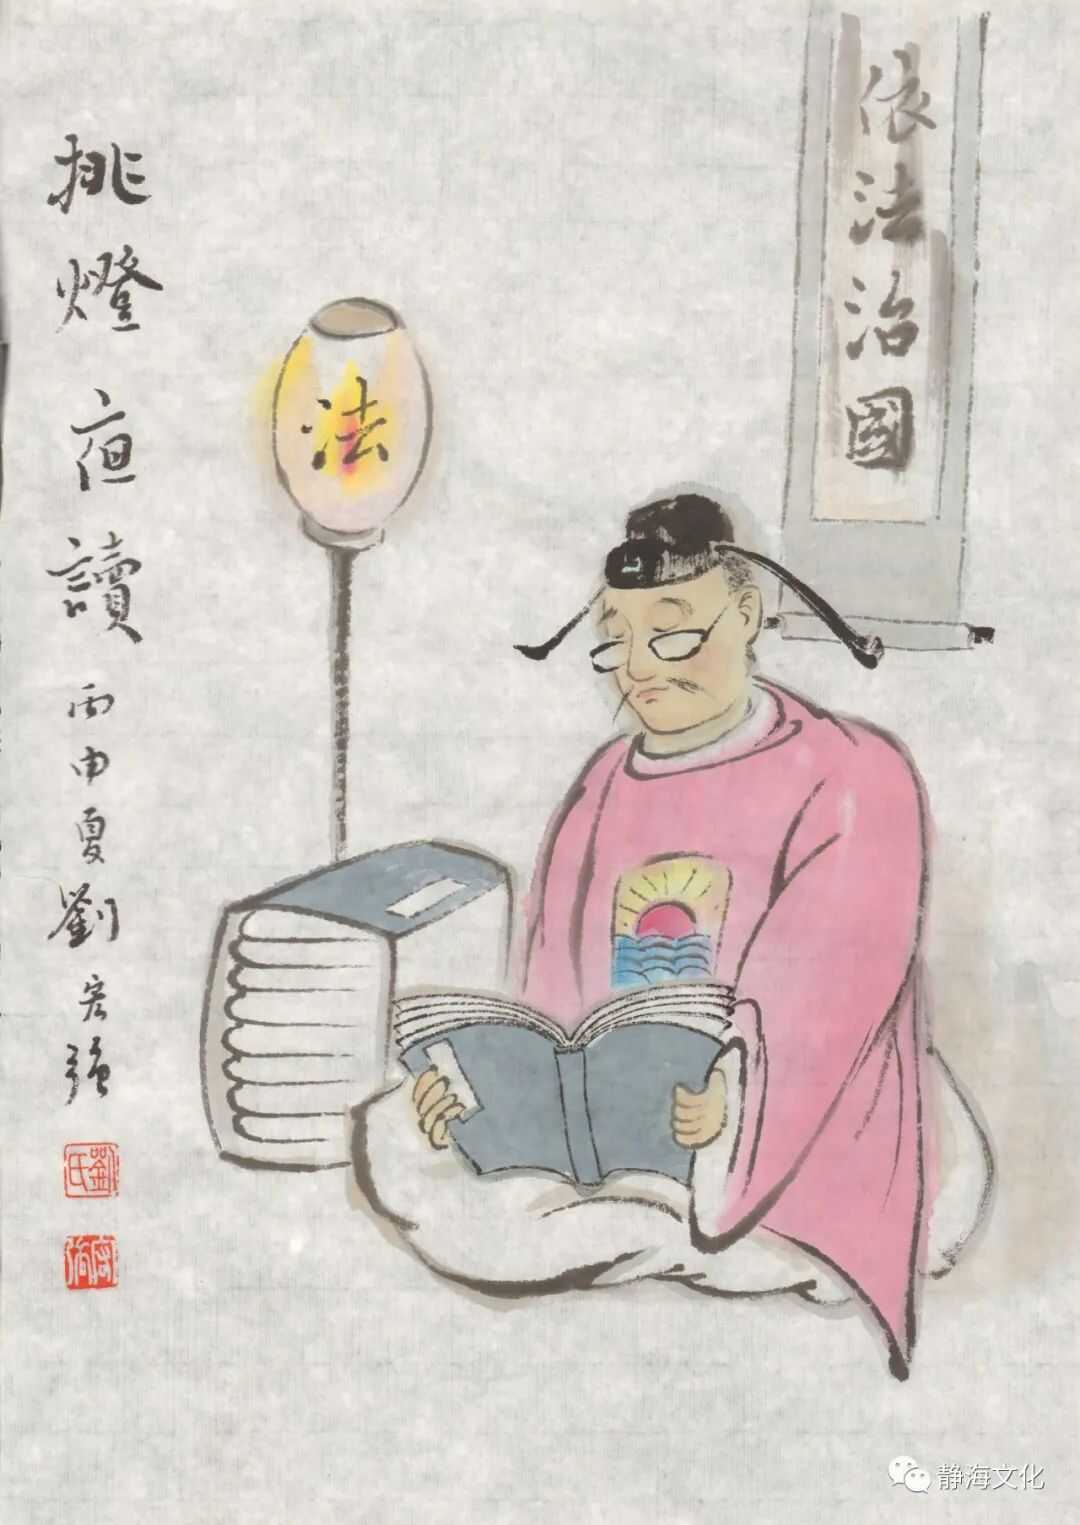 依法治國
法
挑燈夜讀
丙申夏劉宏強
劉氏
静海文化